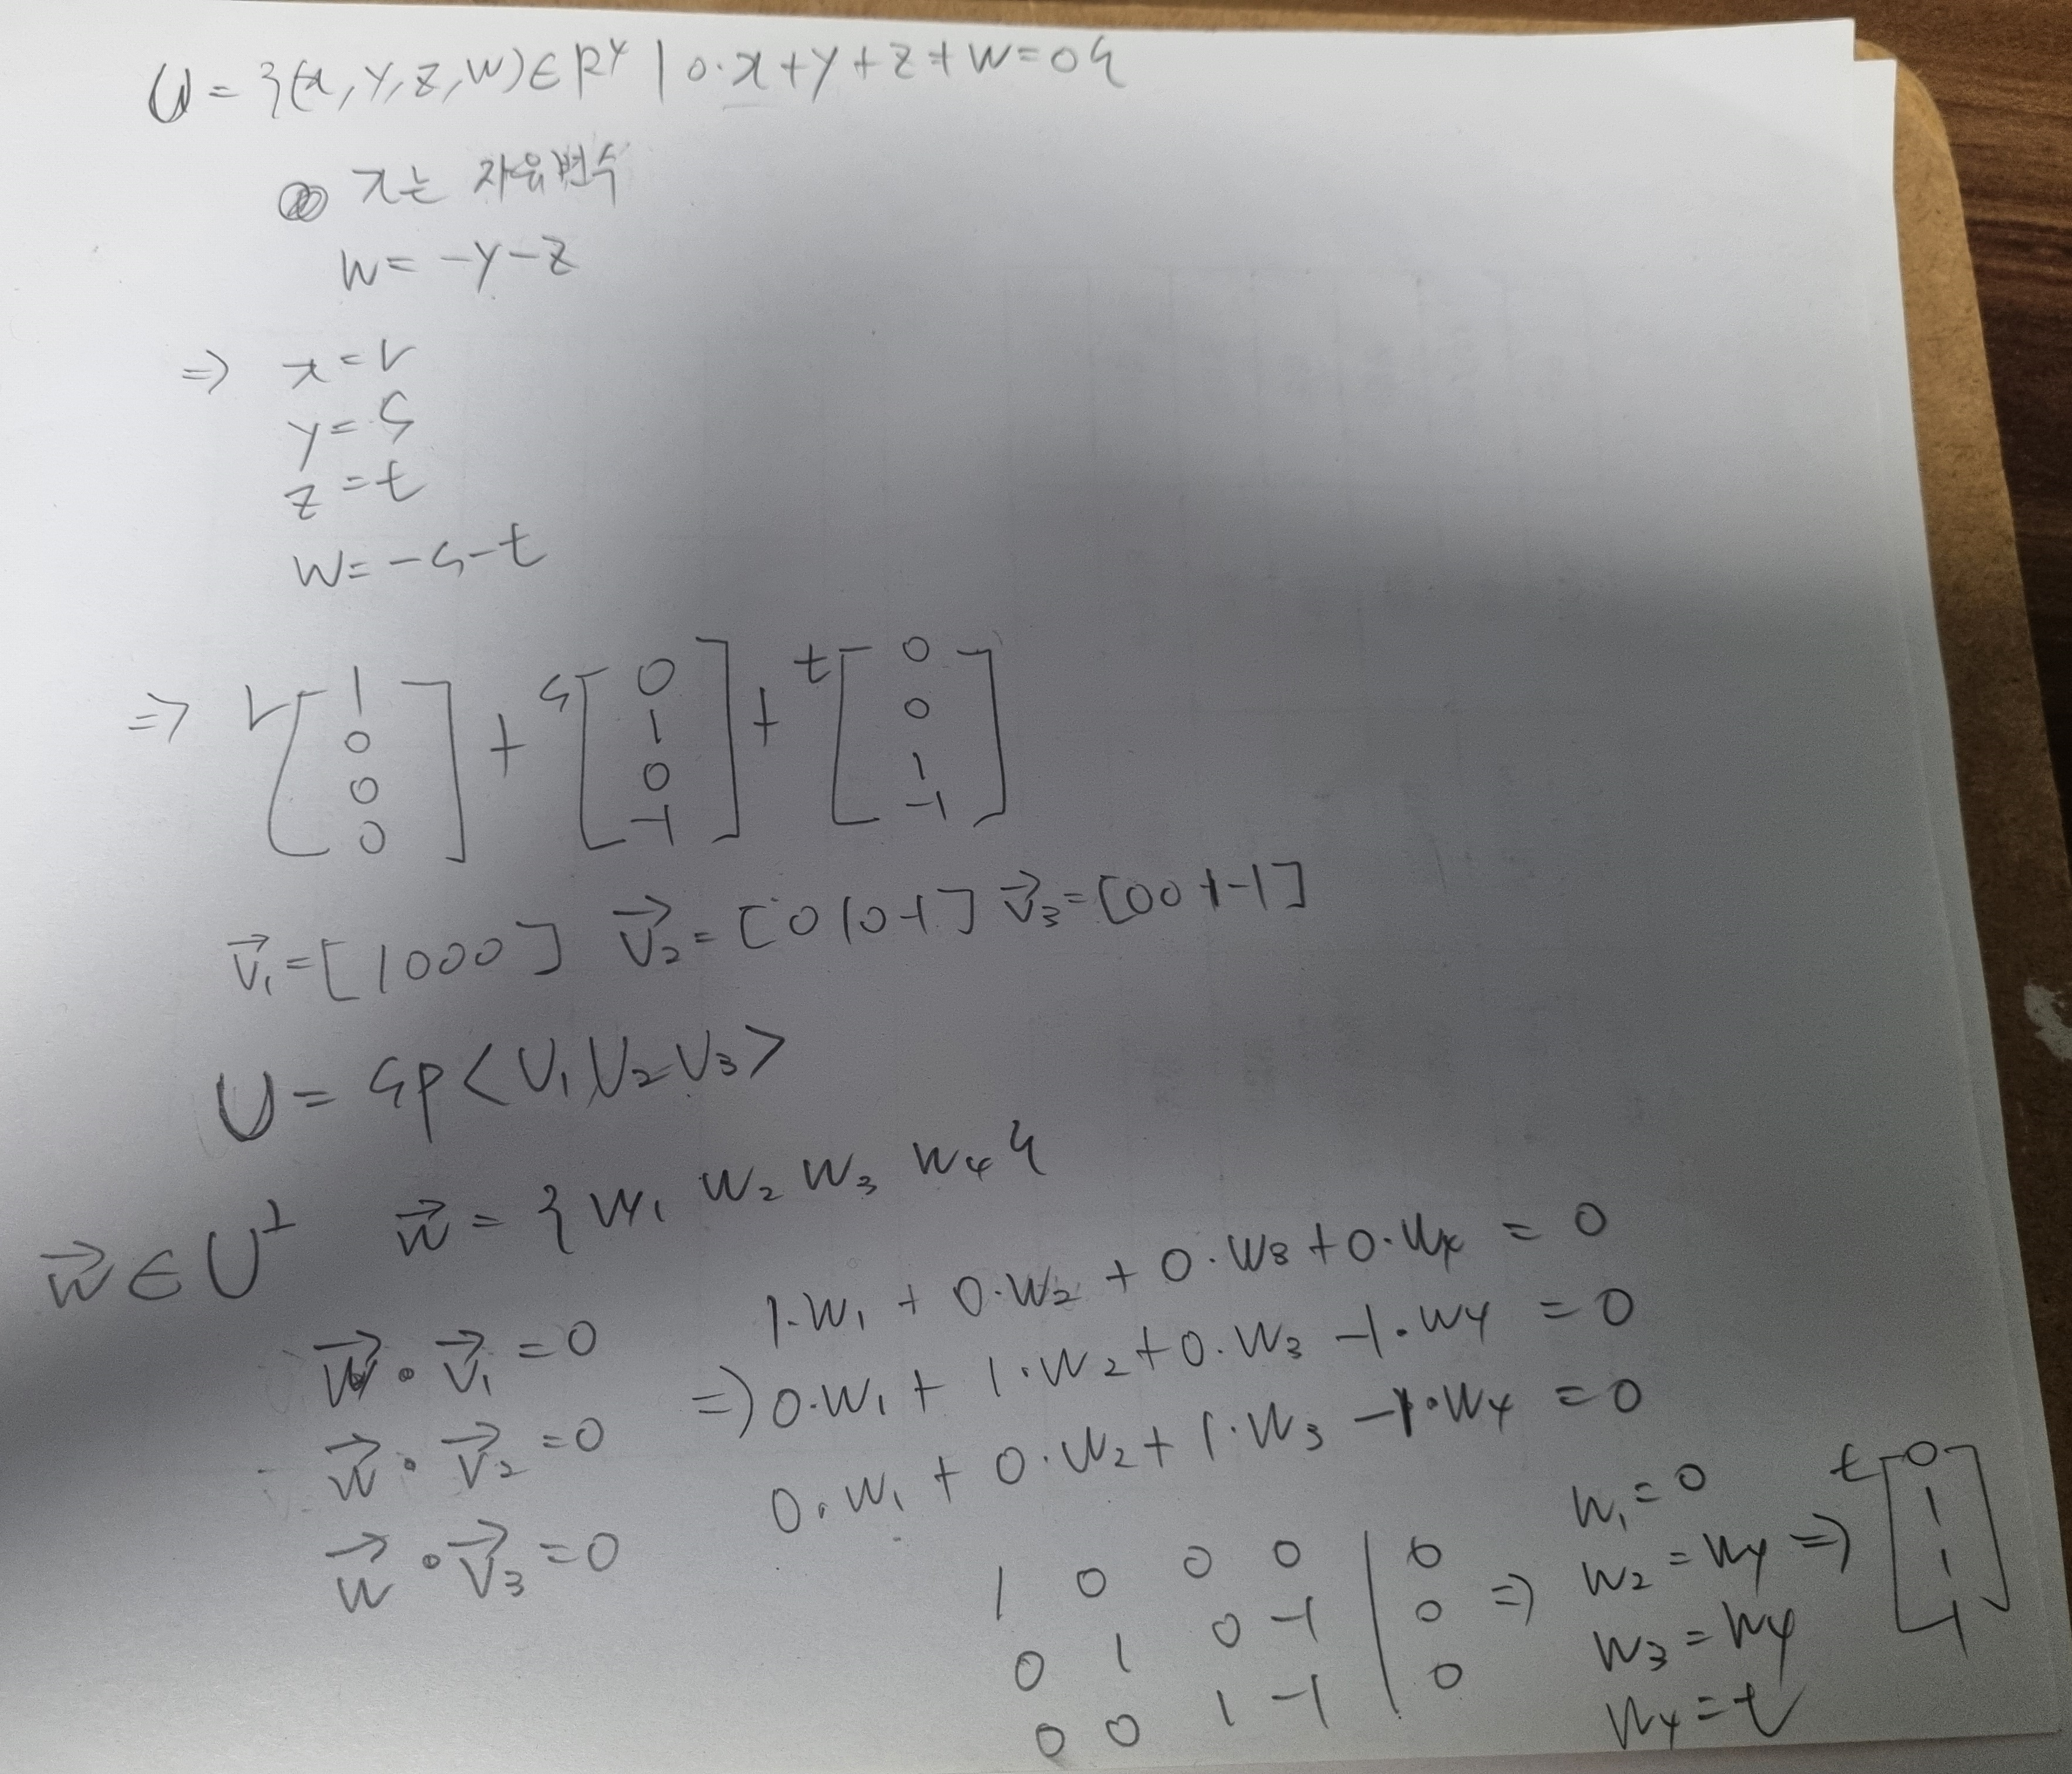 U = {(x, y, z, w) ∈ R⁴ | 0·x + y + z + w = 0}
x는 자유변수
w = -y-z
⇒ x = r
y = s
z = t
w = -s-t
⇒ r[1 0 0 0] + s[0 1 0 -1] + t[0 0 1 -1]
v⃗₁ = [1 0 0 0] v⃗₂ = [0 1 0 -1] v⃗₃ = [0 0 1 -1]
U = sp<v₁ v₂ v₃>
w⃗ ∈ U^⊥ w⃗ = {w₁ w₂ w₃ w₄}
w⃗ · v⃗₁ = 0
w⃗ · v⃗₂ = 0
w⃗ · v⃗₃ = 0
1·w₁ + 0·w₂ + 0·w₃ + 0·w₄ = 0
⇒ 0·w₁ + 1·w₂ + 0·w₃ -1·w₄ = 0
0·w₁ + 0·w₂ + 1·w₃ -1·w₄ = 0
1 0 0 0 | 0
0 1 0 -1 | 0
0 0 1 -1 | 0
⇒ w₁ = 0
w₂ = w₄
w₃ = w₄
w₄ = t
⇒ t[0 1 1 1]